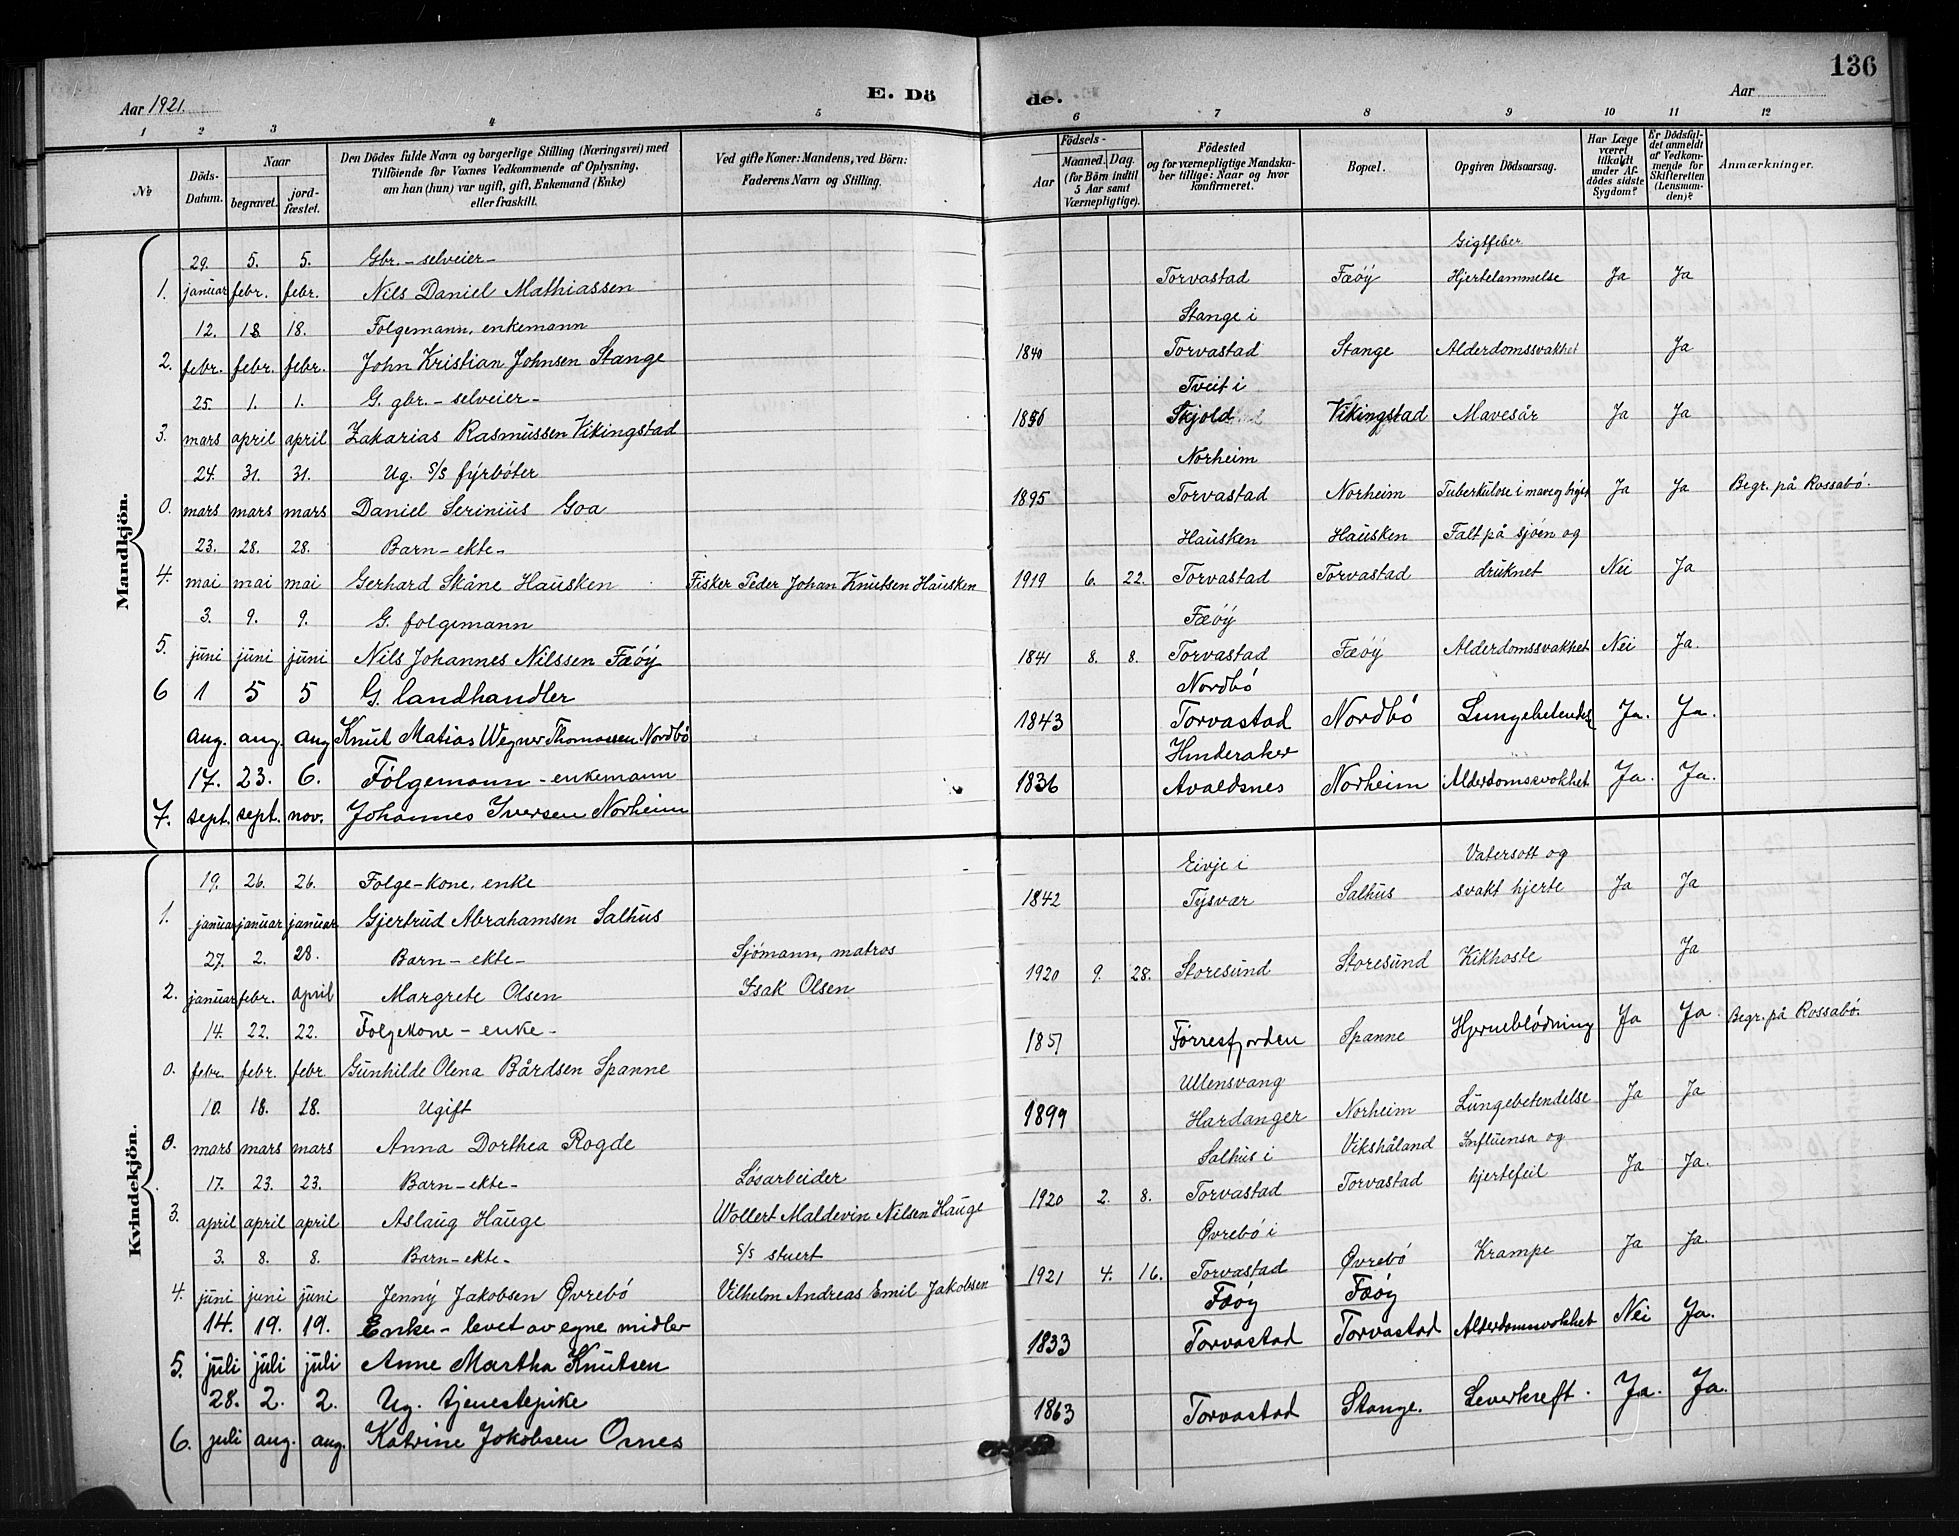 136
Aar 1921. E. Dö de. Aar
1 2 3 4 5 6 7 8 9 10 11 12
No
Döds-Datum.
Naar
begravet.
jord-fæstet.
Den Dödes fulde Navn og borgerlige Stilling (Næringsvei) med
Tilföiende for Voxnes Vedkommende af Oplysning,
om han (hun) var ugift, gift, Enkemand (Enke)
eller fraskilt.
Ved gifte Koner: Mandens, ved Börn:
Faderens Navn og Stilling.
Födsels-
Aar
Maaned. Dag.
(for Börn indtil
5 Aar samt
Værnepligtige).
Födested
og for værnepligtige Mandska-
ber tillige: Naar og hvor
konfirmeret.
Bopæl.
Opgiven Dödsaarsag.
Har Læge
været
tilkaldt
under Af-
dödes sidste
Sygdom?
Er Dödsfal-
det anmeldt
af Vedkom-
mende for
Skifteretten
(Lensman-
den)?
Anmærkninger.
Mandkjön.
29. 5. 5. Gbr. - selveier - Gigtfeber
1. januar febr. febr. Nils Daniel Mathiassen Torvastad Fæöy Hjertelammelse Ja Ja
12. 18 18. Folgemann, enkemann Stange i
2. febr. febr. febr. John Kristian Johnsen Stange 1840 Torvastad Stange Alderdomssvakhet Ja
25. 1. 1. G. gbr. - selveier - Tveit i
3. mars april april Zakarias Rasmussen Vikingstad 1856 Skjold Vikingstad Mavesår Ja Ja
24. 31. 31. Ug. s/s fyrböter Norheim
0. mars mars mars Daniel Serinius Goa 1895 Torvastad Norheim Tuberkulose i mave og bryst Ja Ja Begr. på Rossabö.
23. 28. 28. Barn - ekte - Hausken Hausken Falt på sjöen og
4. mai mai mai Gerhard Skåne Hausken Fisker Peder Johan Knutsen Hausken 1919 6. 22. Torvastad Torvastad druknet Nei Ja
3. 9. 9. G. folgemann Fæöy
5. juni juni juni Nils Johannes Nilssen Fæöy 1841 8. 8. Torvastad Fæöy Alderdomssvakhet Nei Ja.
6 1 5 5 G. landhandler Nordbö
aug. aug. aug Knut Matias Wegner Thomassen Nordbö 1843 Torvastad Nordbö Lungebetendels Ja. Ja.
17. 23. 6. Fölgemann - enkemann Hinderaker
7. sept. sept. nov. Johannes Iversen Norheim 1836 Avaldsnes Norheim Alderdomssvakhet Ja. Ja.
Kvindekjön.
19. 26. 26. Folge-kone, enke Eivje i Vatersott og
1. januar januar januar Gjertrud Abrahamsen Salhus 1842 Tysvær Salhus svakt hjerte Ja Ja
27. 2. 28. Barn - ekte - Sjömann, matros
2. januar febr. april Margrete Olsen Isak Olsen 1920 9. 28. Storesund Storesund Kikhoste Ja
14. 22. 22. Folgekone - enke -
0. febr. febr. febr. Gunhilde Olena Bårdsen Spanne 1851 Förresfjorden Spanne Hjerneblödning Ja Ja. Begr. på Rossabö.
10. 18. 18. Ugift Ullensvang
0. mars mars mars Anna Dorthea Rogde 1899 Hardanger Norheim Lungebetendelse Ja Ja
17. 23. 23. Barn - ekte - Lösarbeider Salhus i Vikshåland Influensa og
3. april april april Aslaug Hauge Wollert Maldevin Nilsen Hauge 1920 2. 8. Torvastad Torvastad hjertefeil Ja Ja.
3. 8. 8. Barn - ekte - s/s stuert Øvrebö i
4. juni juni juni Jenny Jakobsen Øvrebö Vilhelm Andreas Emil Jakobsen 1921 4. 16. Torvastad Øvrebö Krampe Ja Ja.
14. 19. 19. Enke - levet av egne midler Fæöy Fæöy
5. juli juli juli Anne Martha Knutsen 1833 Torvastad Torvastad Alderdomsvakhet Nei Ja.
28. 2. 2. Ug. tjenestepike
6. juli aug. aug. Katrine Jakobsen Ornes 1863 Torvastad Stange. Leverkreft. Ja. Ja.